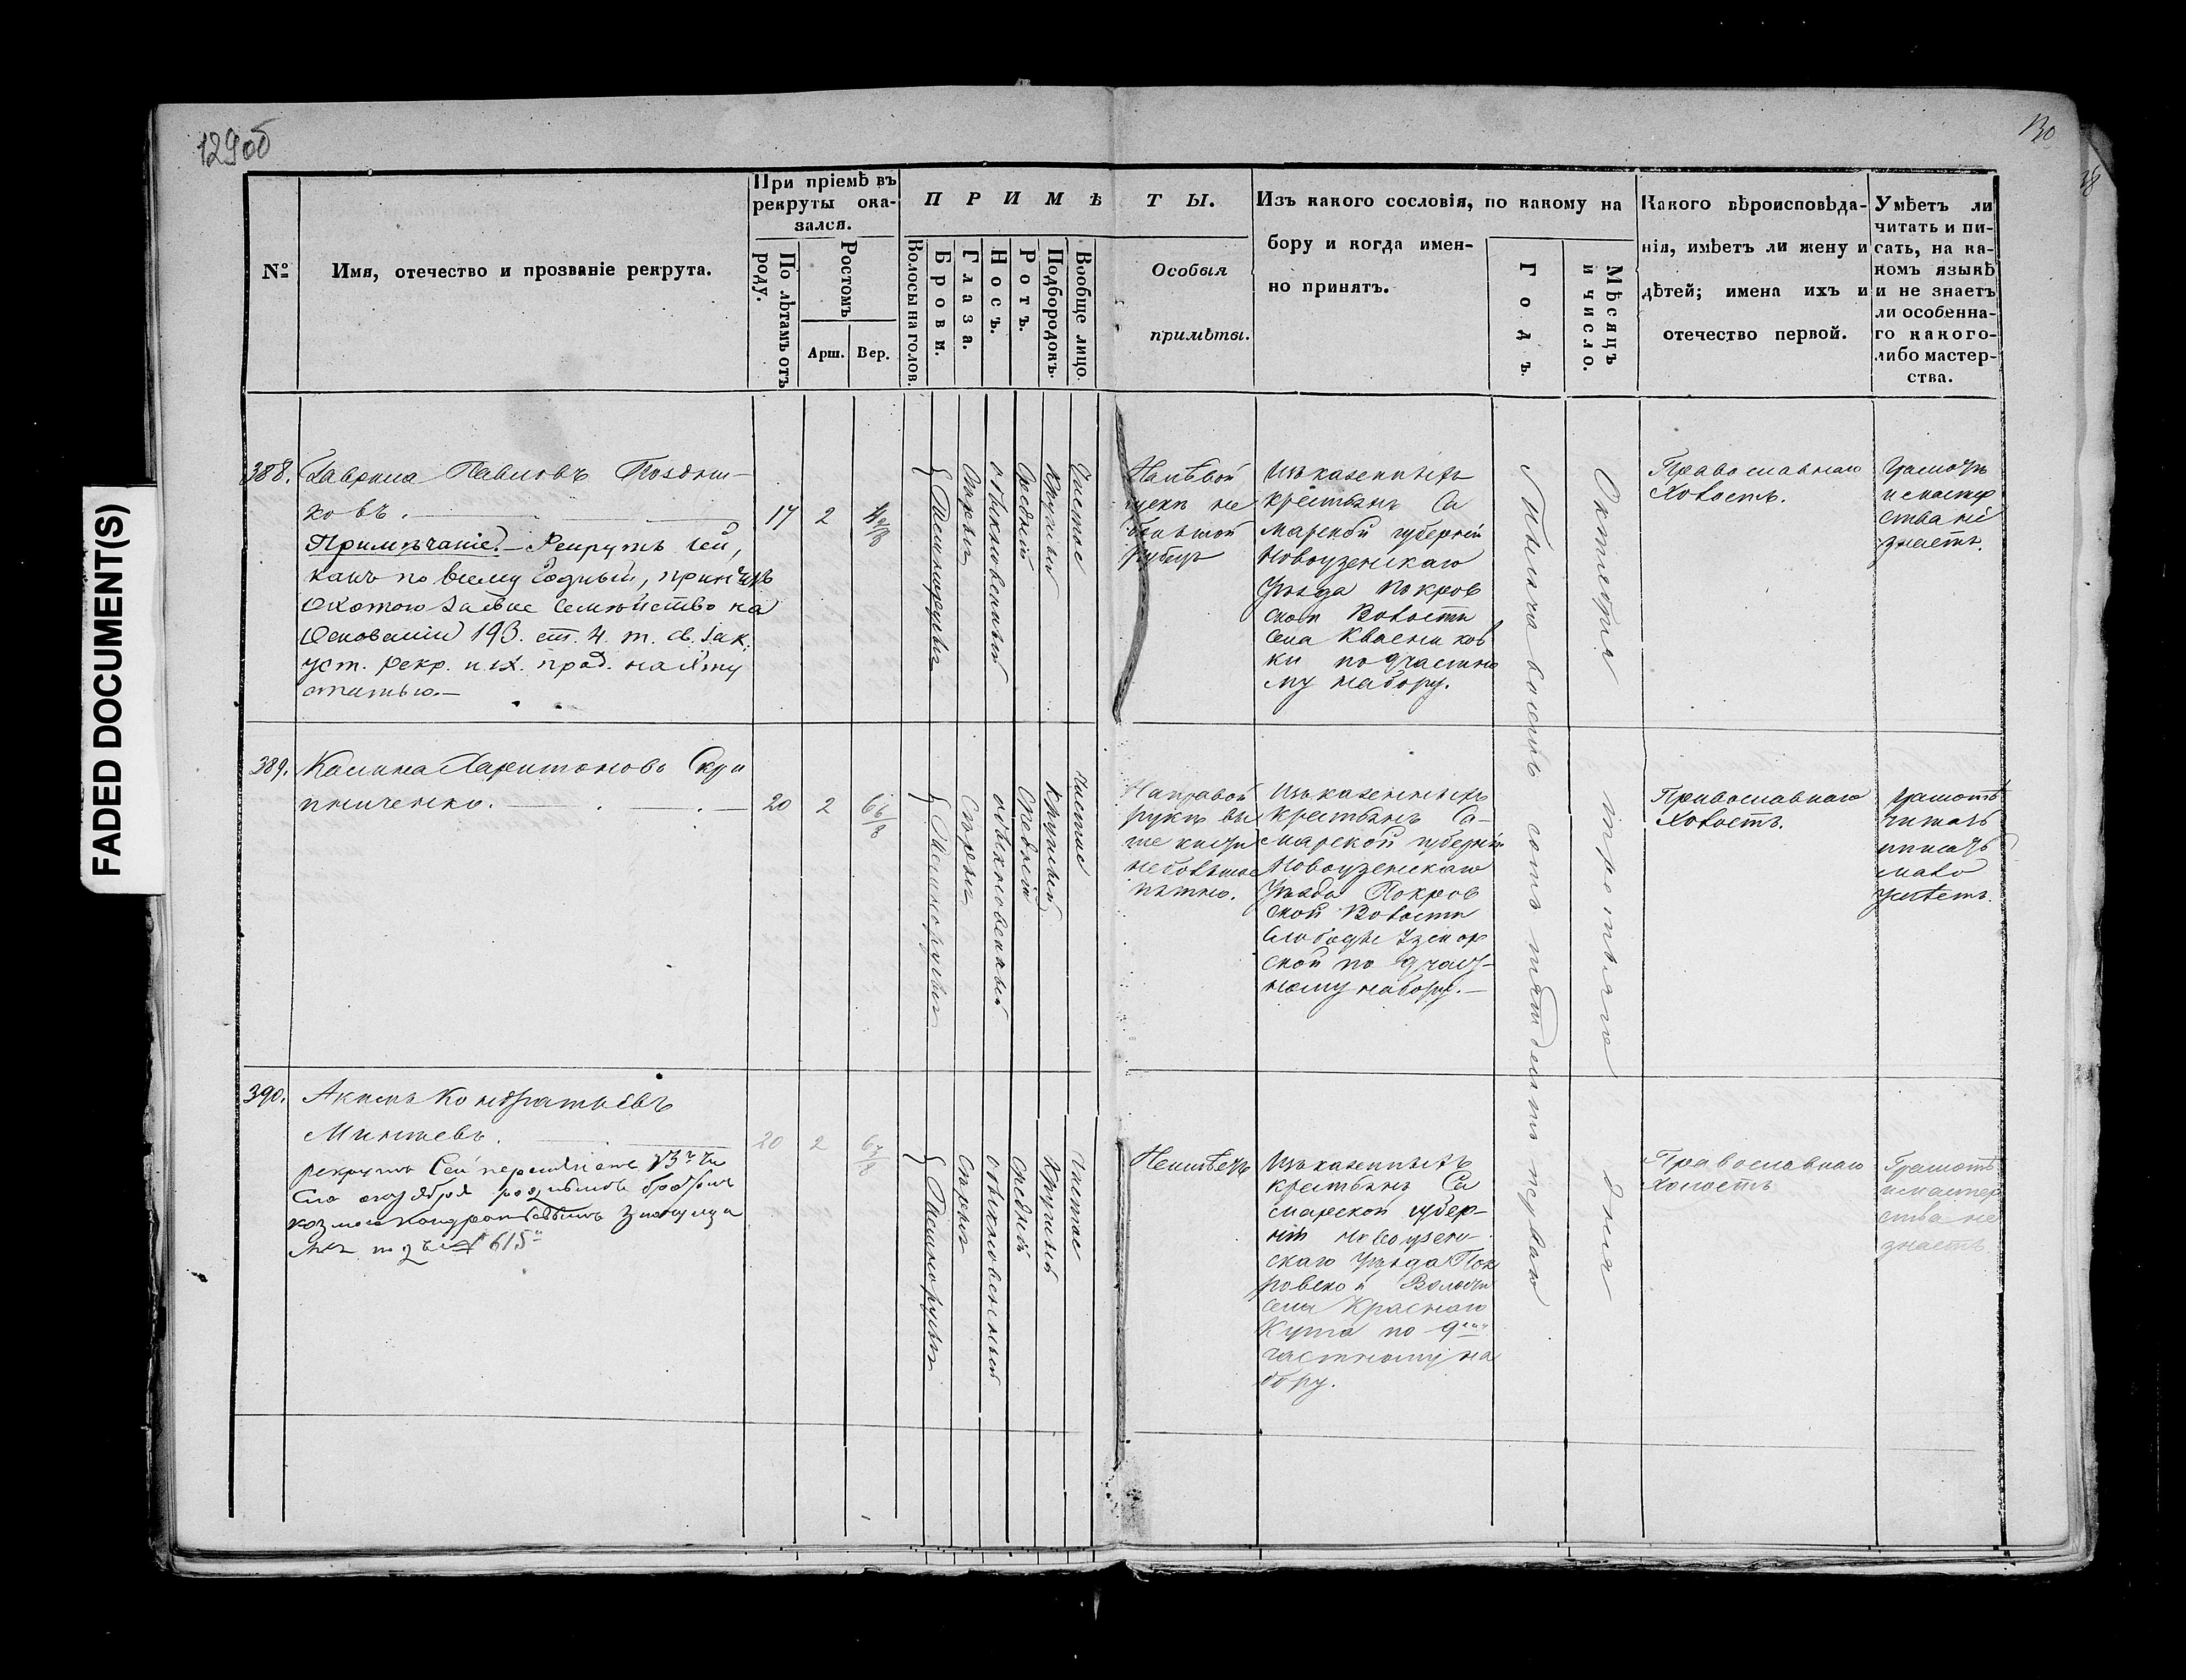 129об
130
38
FADED DOCUMENT(S)
№
Имя, отечество и прозваніе рекрута.
При пріемѣ въ
рекруты ока-
зался.
По лѣтамъ отъ
роду.
Ростомъ
Арш.
Вер.
ПРИМѢТЫ.
Волосы на голов.
Брови.
Глаза.
Носъ.
Ротъ.
Подбородокъ.
Вообще лицо.
Особыя
примѣты.
Изъ какого сословія, по какому на
бору и когда имен-
но принятъ.
Годъ.
Мѣсяцъ
и число.
Какого вѣроисповѣда-
нія, имѣетъ ли жену и
дѣтей; имена ихъ и
отечество первой.
Умѣетъ ли
читать и пи-
сать, на ка-
комъ языкѣ
и не знаетъ
ли особенна-
го какого-
либо мастер-
ства.
388.
Гаврила Павловъ Поздня-
ковъ.
Примѣчаніе. Рекрутъ сей,
какъ по всему годный, принятъ
охотою за свое семейство на
основаніи 193. ст. 4. т. св. зак.
уст. рекр.
статью.
17
2
4
Темнорусыя
Сѣрыя
обыкновенный
Средній
Круглый
Чистое
На лѣвой
щекѣ не
большой
рубецъ
Изъ казенныхъ
крестьянъ Са
марской губерніи
Новоузенскаго
Уѣзда Покров
ской Волости
села Квасников
ки по 9 частно
му набору.
Тысяча восемь сотъ пятьдесятъ перваго
Октября третьяго дня
Православнаго
Холостъ.
Грамотѣ
и мастер
ства не
знаетъ.
389.
Калина Харитоновъ Скри
пниченко.
20
2
6 6/8
Темнорусыя
Сѣрыя
обыкновенный
Средній
Круглый
Чистое
На правой
рукѣ вы
ше кисти
небольшое
пятно.
Изъ казенныхъ
Крестьянъ Са-
марской губерніи
Новоузенскаго
Уѣзда Покров
ской Волости
Слободы Узмор
ской по 9 част-
ному набору.
Православнаго
Холостъ.
Грамотѣ
читать
и писать
мало
умѣетъ.
390.
Акимъ Кондратьевъ
Минаевъ.
рекрутъ Сей
роднымъ братомъ
№ 615
20
2
6
Темнорусыя
Сѣрыя
обыкновенный
Средній
Круглый
Чистое
Неимѣетъ
Изъ казенныхъ
крестьянъ Са
марской губер-
ніи Новоузен-
скаго Уѣзда Пок
ровской Волости
села Краснаго
Кута по 9
частному на
бору.
Православнаго
Холостъ
Грамотѣ
и мастер
ства не
знаетъ.